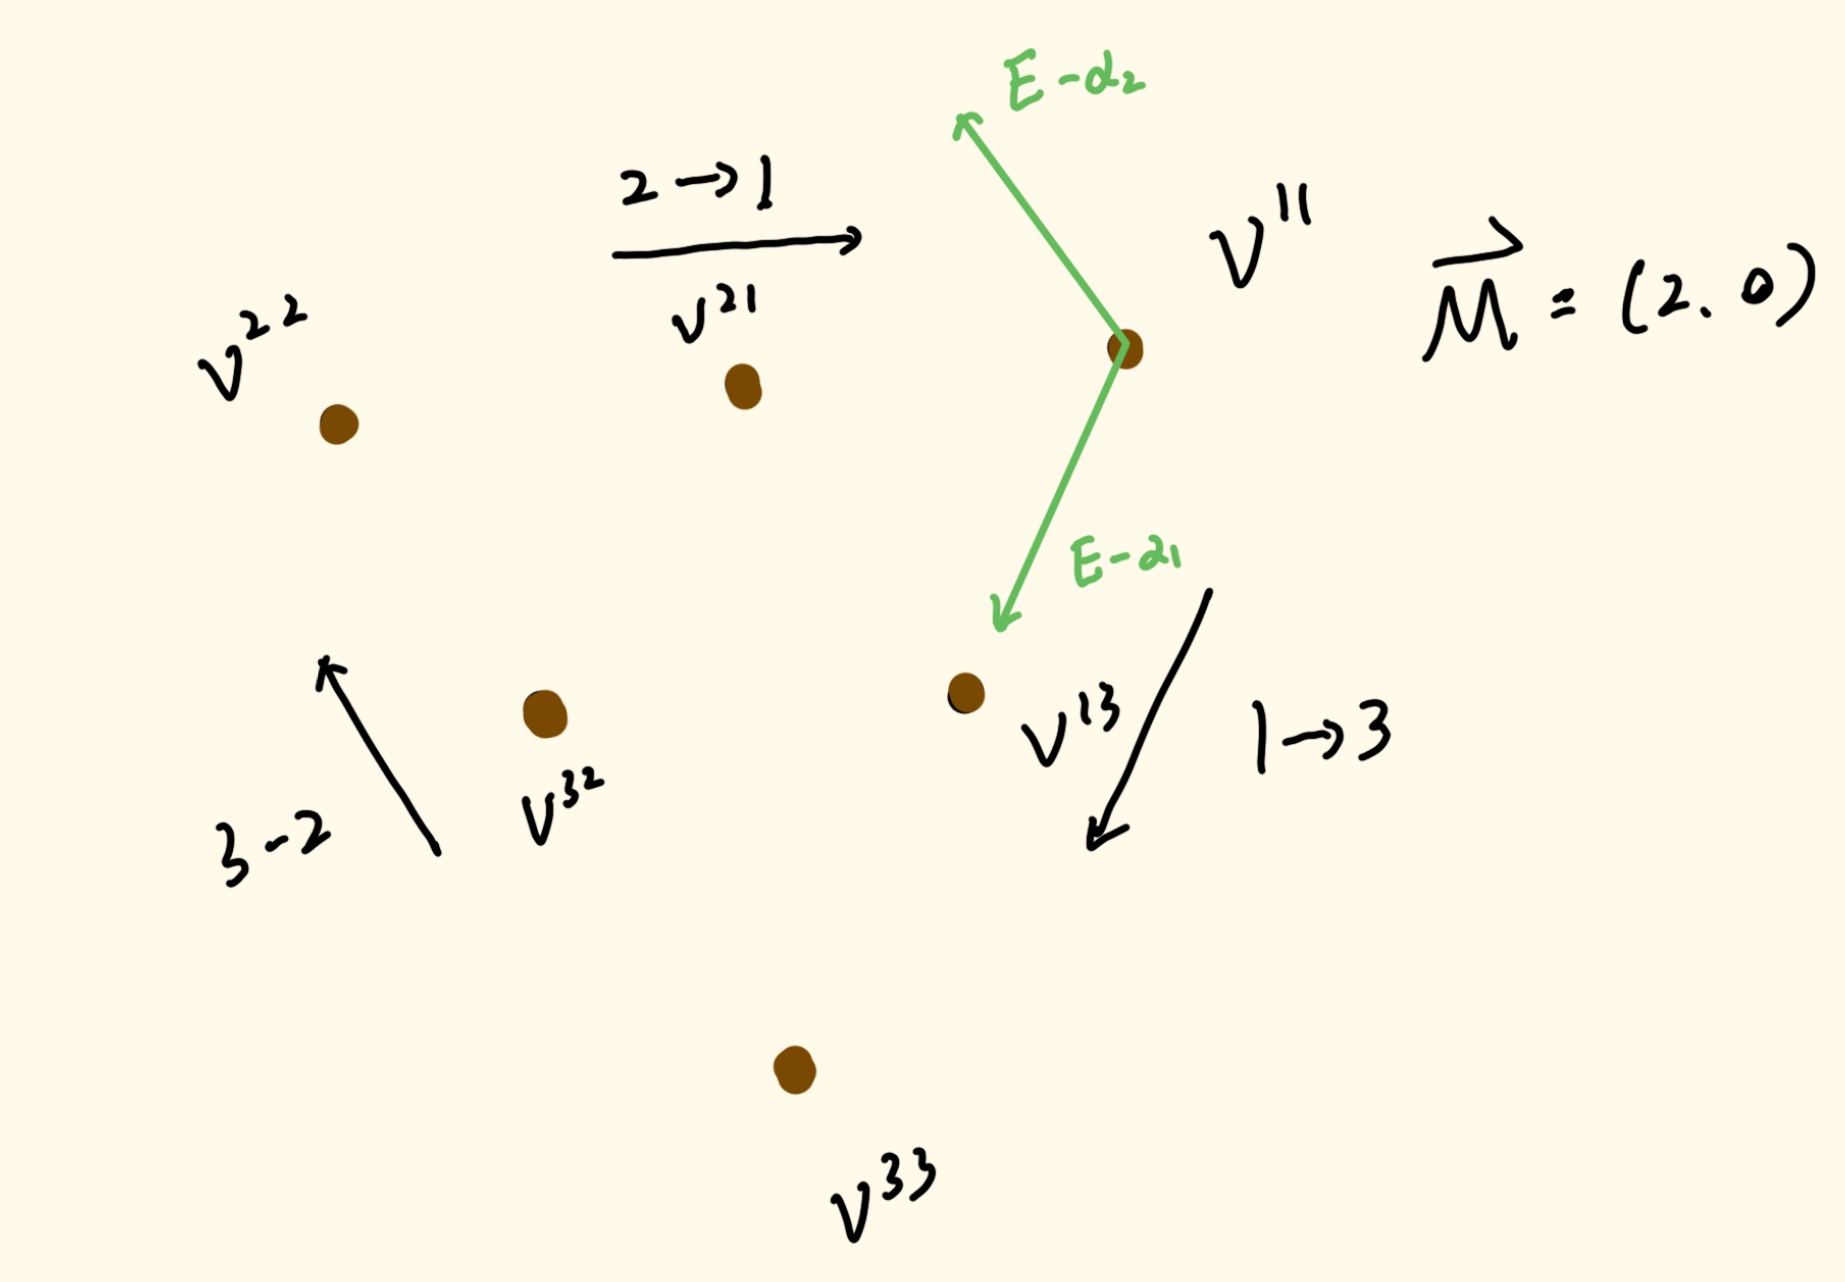 E-α₂
2→1
V¹¹
M⃗ = (2.0)
V²¹
V²²
E-α₁
V¹³
1→3
V³²
3-2
V³³